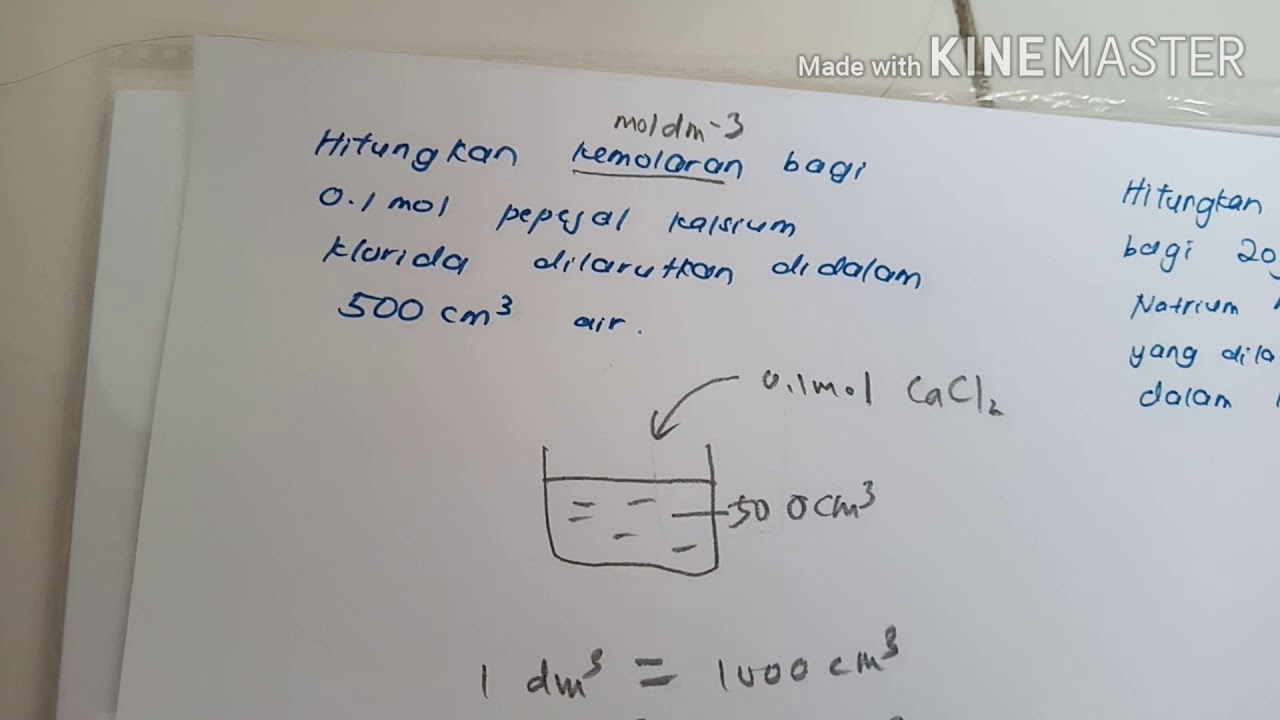 Made with KINEMASTER
moldm-3
Hitungkan kemolaran bagi
0.1 mol pepejal kalsium
klorida dilarutkan didalam
500 cm³ air.
0.1mol CaCl₂
500cm³
1 dm³ = 1000 cm³
Hitungkan
bagi 20g
Natrium
yang dila
dalam